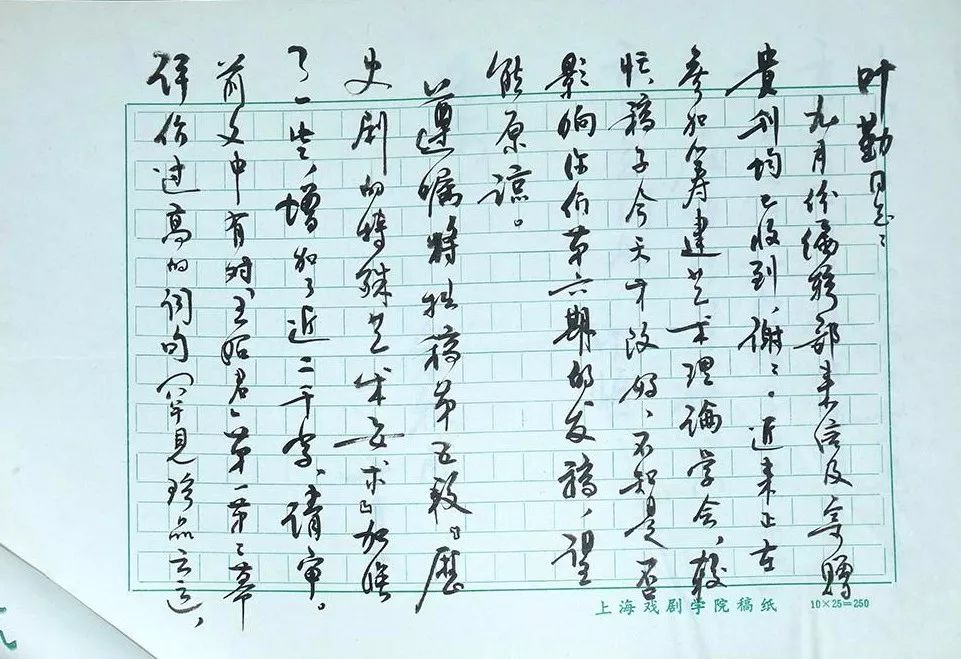 叶勤同志：
九月份编辑部来信及寄赠
贵刊均已收到，谢谢。近来正在
参加筹建艺术理论学会，较
忙，稿子今天才改好，不知是否
影响你们第六期的发稿，望
能原谅。
遵嘱将拙稿第五段“历
史剧的特殊艺术要求”加以
了一些，增加了近二千字，请审。
前文中有对“王昭君”第一第二幕
评价过高的例句（罕见珍品云云），
上海戏剧学院稿纸 10×25=250